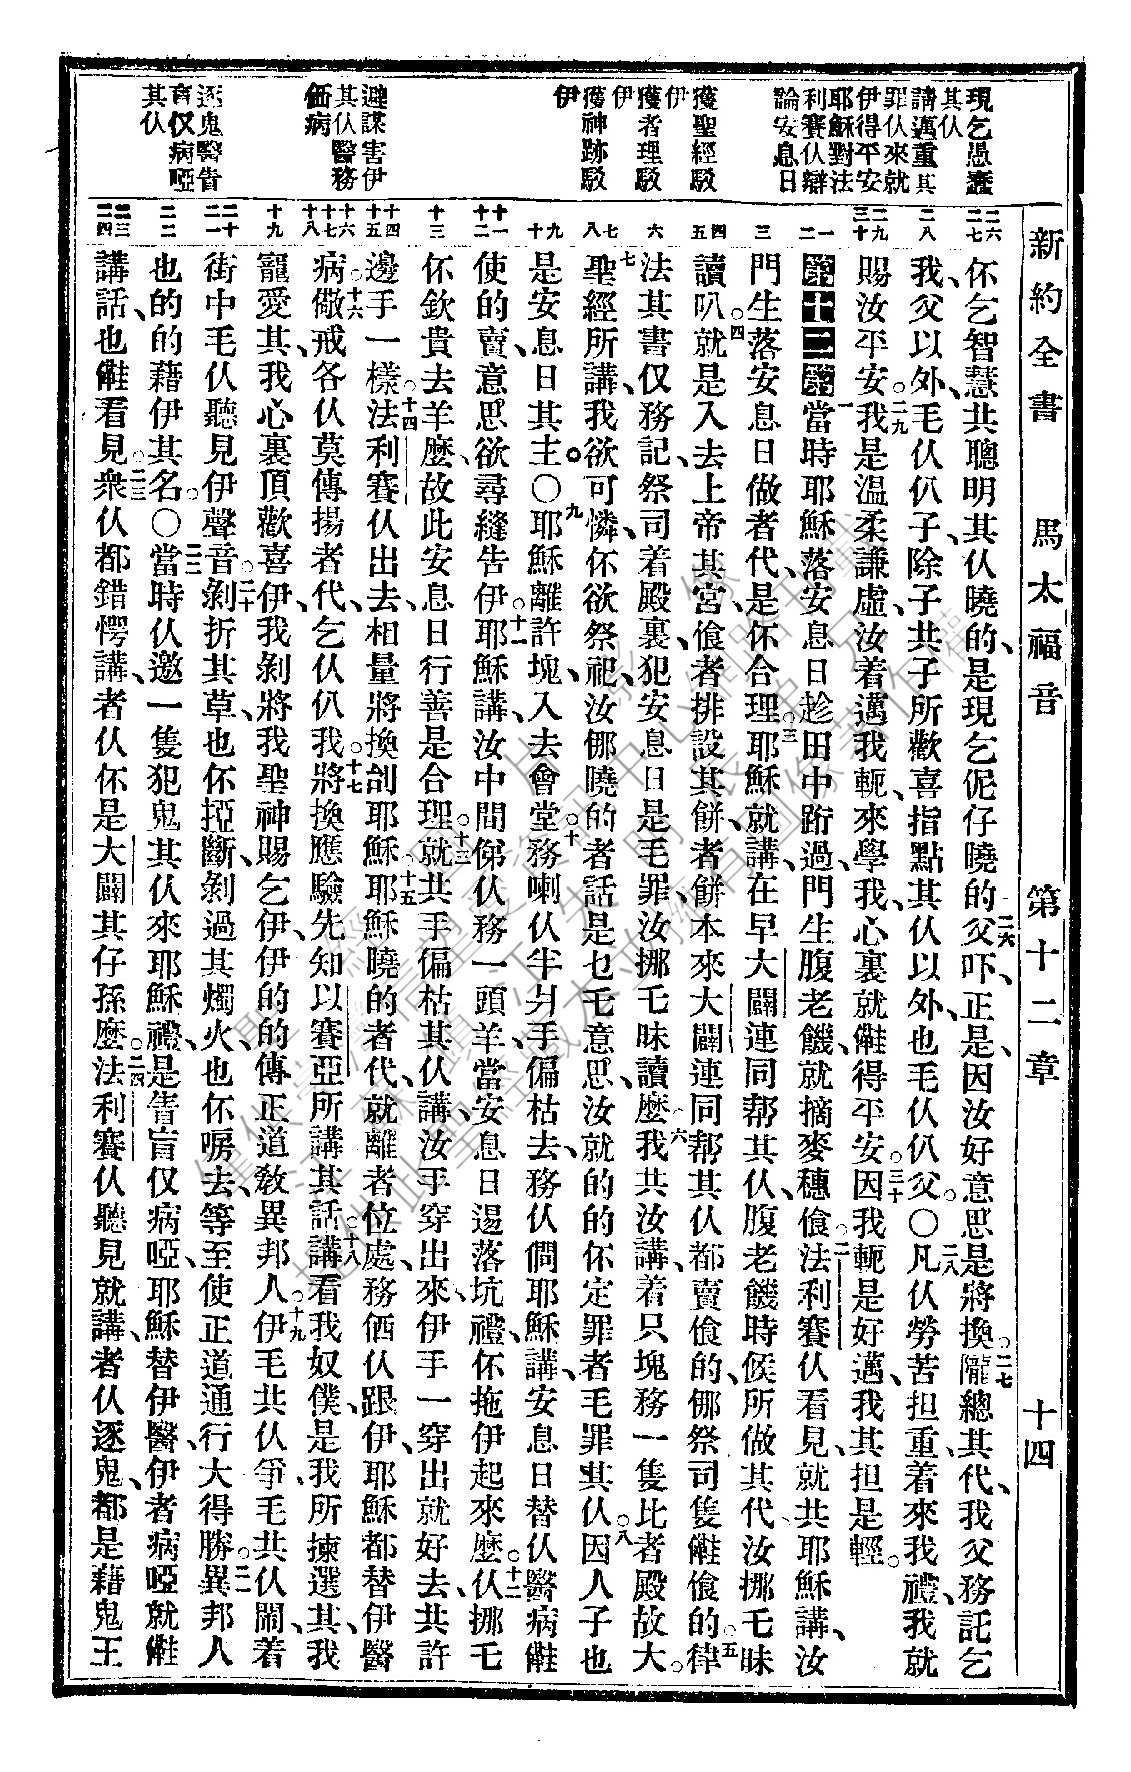 新約全書 馬太福音 第十二章 十四
現乞愚蠢
其仈
請邁重其
罪仈來就
伊得平安
耶穌對法
利賽仈辯
論安息日
獲聖經駁
伊
獲者理駁
伊
獲神跡駁
伊
避謀害伊
其仈醫務
価病
逐鬼醫眚
盲仅病啞
其仈
伓乞智慧共聰明其仈曉的、是現乞伲仔曉的、二六父吓、正是因汝好意思是將換。二七隴總其代、我父務託乞
我、父以外毛仈仈子、除子共子所歡喜指點其仈以外也毛仈仈父。〇二八凡仈勞苦担重着來我禮、我就
賜汝平安。二九我是溫柔謙虛、汝着邁我軛、來學我、心裏就㑚得平安。三十因我軛是好邁、我其担是輕。
第十二章一當時耶穌落安息日趁田中跨過、門生腹老饑、就摘麥穗飡。二法利賽仈看見、就共耶穌講、汝
門生落安息日做者代、是伓合理。三耶穌就講、在早大闢連同幫其仈、腹老饑時候所做其代、汝挪毛昧
讀叭。四就是入去上帝其宮、飡者排設其餅、者餅本來大闢連同幫其仈都賣飡的、㑚祭司隻㑚飡的。五律
法其書仅務記、祭司着殿裏犯安息日是毛罪、汝挪乇昧讀麽。六我共汝講、着只塊務一隻比者殿故大。
七聖經所講、我欲可憐、伓欲祭祀、汝㑚曉的者話是乜乇意思、汝就的的伓定罪者毛罪其仈。八因人子也
是安息日其主。〇九耶穌離許塊、入去會堂。十務喇仈半身手偏枯去、務仈僴耶穌講、安息日替仈醫病㑚
使的賣、意思欲尋縫告伊。十一耶穌講、汝中間㑚仈務一頭羊、當安息日逿落坑禮、伓拖伊起來麽。十二仈挪乇
伓欽貴去羊麽、故此安息日行善是合理。十三就共手偏枯其仈講、汝手穿出來、伊手一穿出就好去、共許
邊手一樣。十四法利賽仈出去、相量將換創耶穌。十五耶穌曉的者代、就離者位處、務価仈跟伊、耶穌都替伊醫
病、十六儆戒各仈莫傳揚者代、乞仈仈我。十七將換應驗先知以賽亞所講其話。十八講看我奴僕、是我所揀選其、我
寵愛其、我心裏頂歡喜伊、我剝將我聖神賜乞伊、伊的的傳正道教異邦人。十九伊毛共仈爭、毛共仈鬧、着
街中毛仈聽見伊聲音。二十剝折其草、也伓挜斷、剝過其燭火、也伓唳去、等至使正道通行大得勝。二一異邦人
也的的藉伊其名。〇二二當時仈邀一隻犯鬼其仈來耶穌禮、是眚盲仅病啞、耶穌替伊醫、伊者病啞就㑚
講話、也㑚看見。二三衆仈都錯愕講、者仈伓是大闢其仔孫麽。二四法利賽仈聽見就講、者仈逐鬼、都是藉鬼王